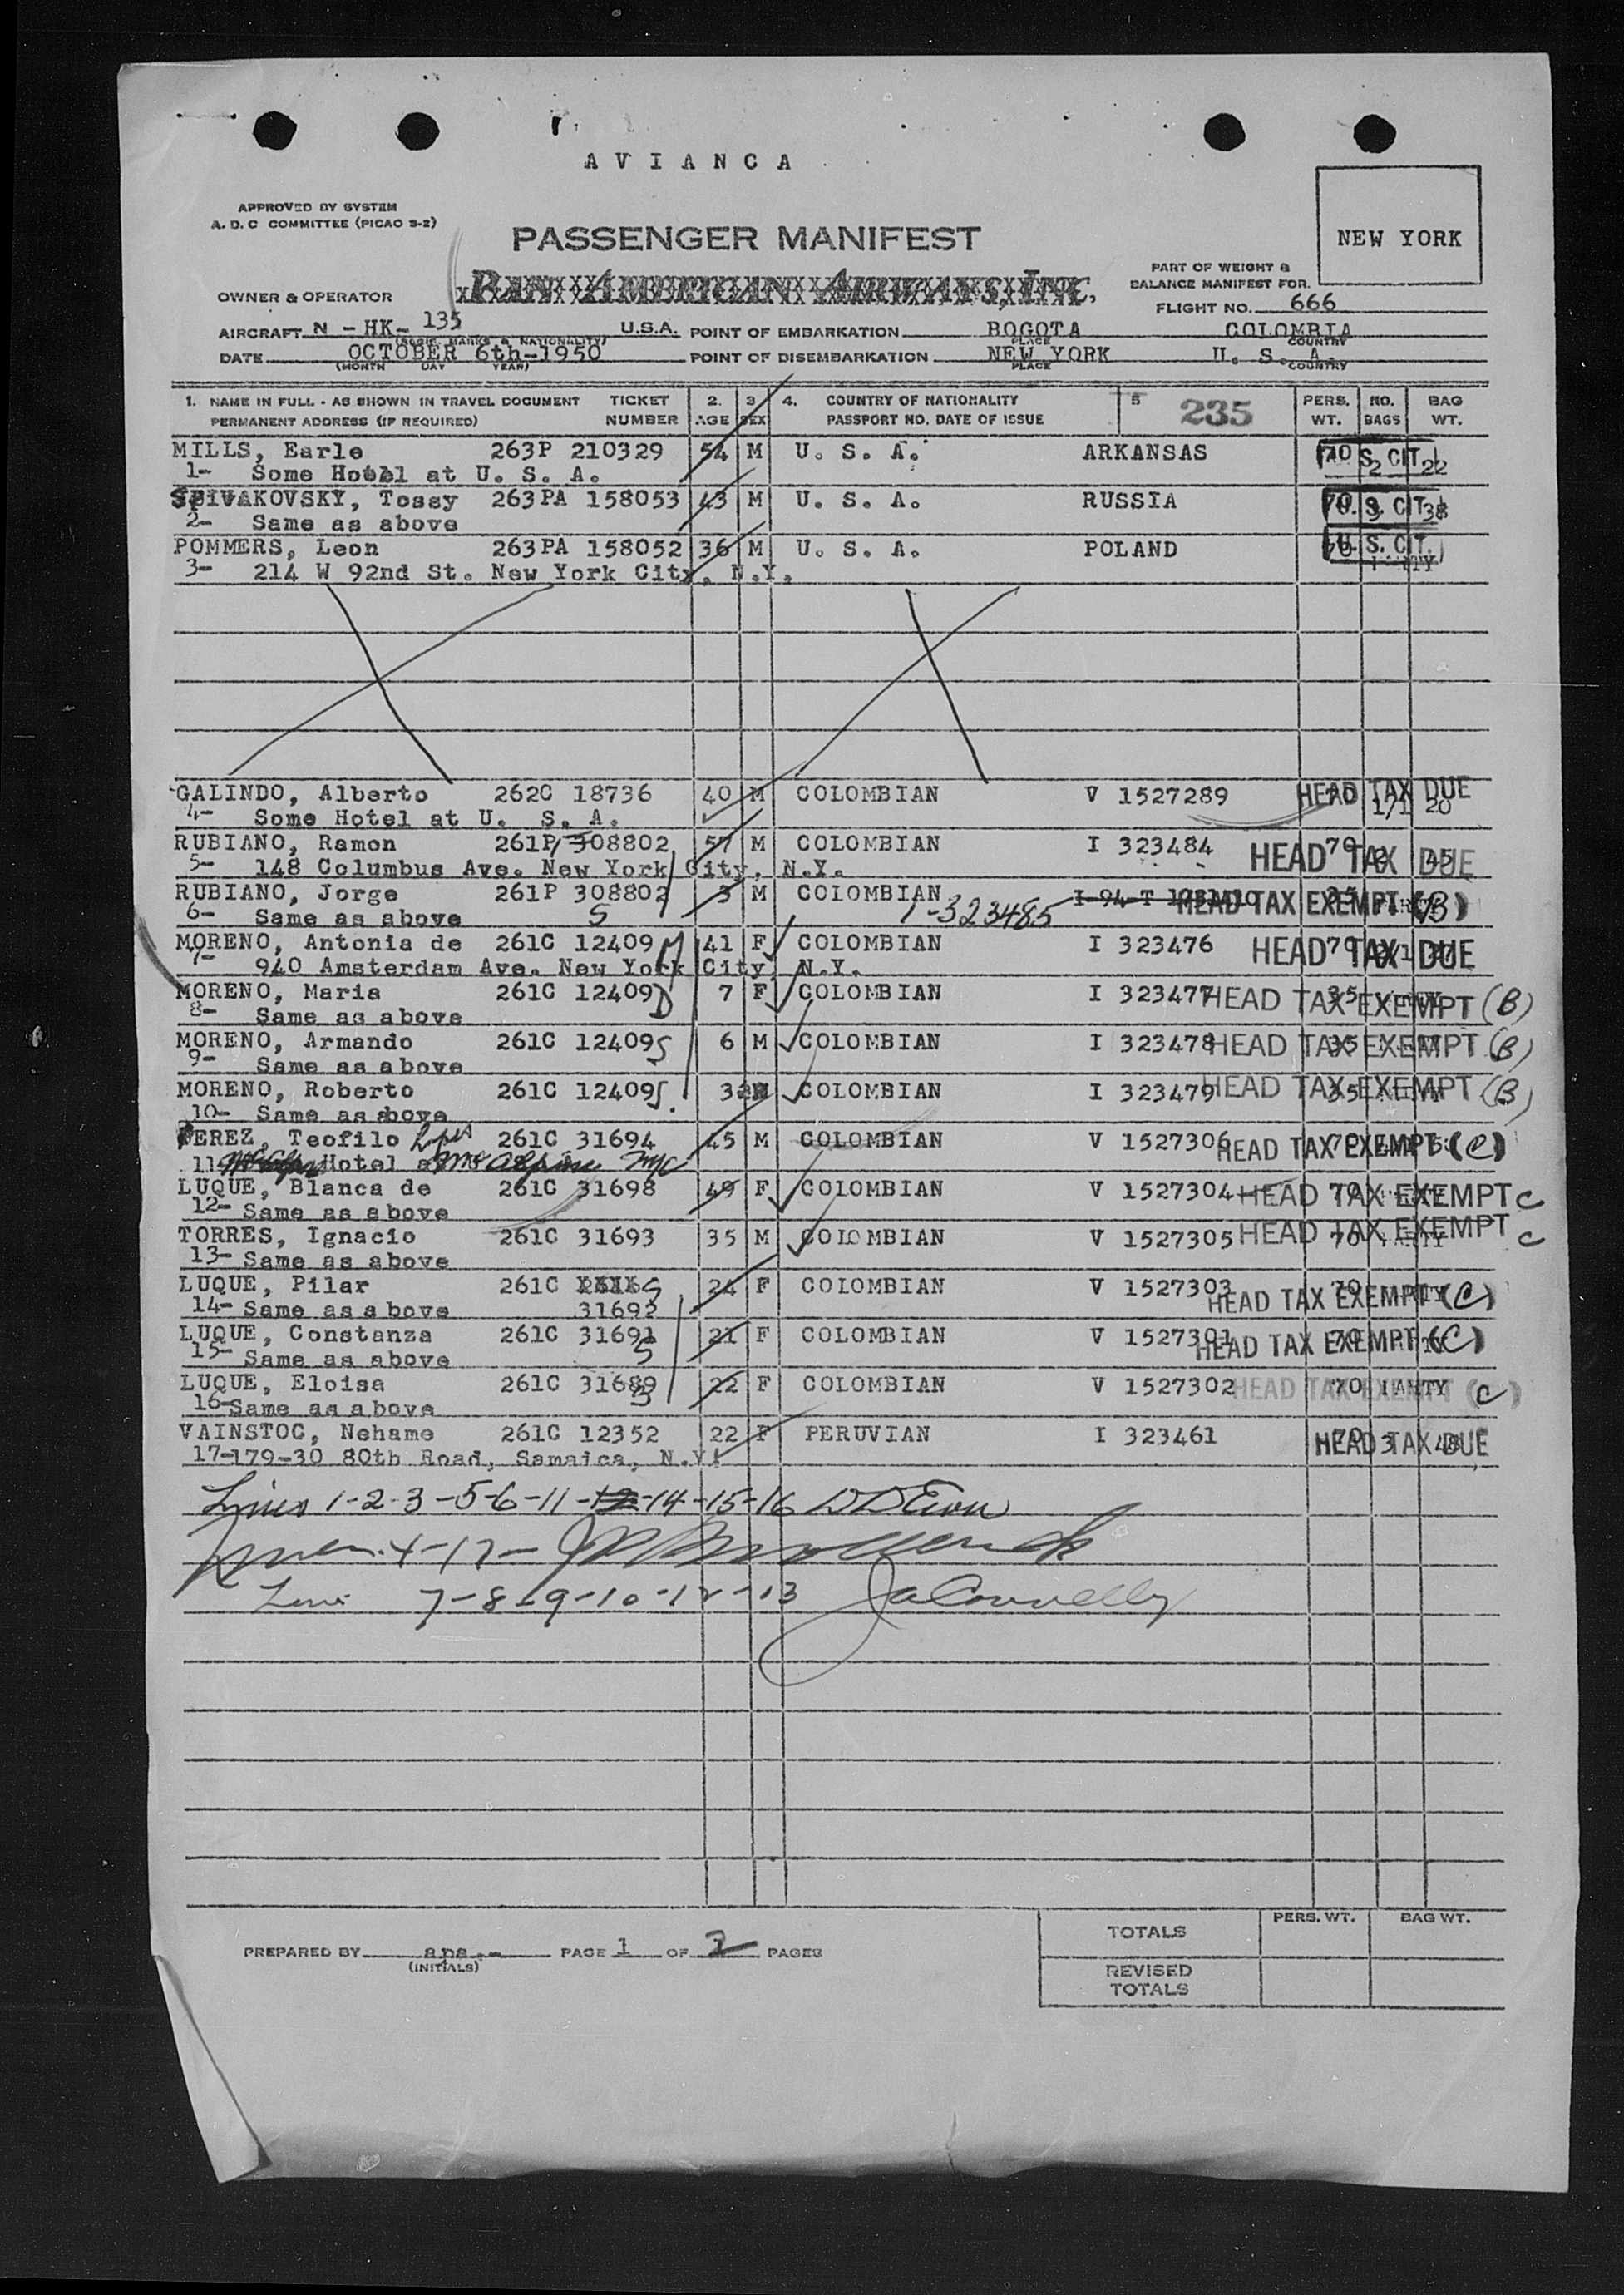 AVIANCA
APPROVED BY SYSTEM
A. D. C COMMITTEE (PICAO S-2)
PASSENGER MANIFEST
NEW YORK
PART OF WEIGHT &
BALANCE MANIFEST FOR.
OWNER & OPERATOR PAN AMERICAN AIRWAYS, INC.
FLIGHT NO. 666
AIRCRAFT N - HK- 135 U.S.A. POINT OF EMBARKATION BOGOTA COLOMBIA
(REGIS. MARKS & NATIONALITY) PLACE COUNTRY
DATE OCTOBER 6th-1950 POINT OF DISEMBARKATION NEW YORK U. S. A.
(MONTH DAY YEAR) PLACE COUNTRY
1. NAME IN FULL - AS SHOWN IN TRAVEL DOCUMENT TICKET 2. 3 4. COUNTRY OF NATIONALITY 5 235 PERS. NO. BAG
PERMANENT ADDRESS (IF REQUIRED) NUMBER AGE SEX PASSPORT NO. DATE OF ISSUE WT. BAGS WT.
MILLS, Earle 263P 210329 54 M U. S. A. ARKANSAS 70 S. CIT. 2 22
1- Some Hotel at U. S. A.
SPIVAKOVSKY, Tossy 263PA 158053 43 M U. S. A. RUSSIA 70 S. CIT. 38
2- Same as above
POMMERS, Leon 263PA 158052 36 M U. S. A. POLAND 70 U. S. CIT.
3- 214 W 92nd St. New York City, N.Y.
GALINDO, Alberto 262C 18736 40 M COLOMBIAN V 1527289 HEAD TAX DUE 70 1/1 20
4- Some Hotel at U. S. A.
RUBIANO, Ramon 261P 308802 57 M COLOMBIAN I 323484 70 HEAD TAX DUE
5- 148 Columbus Ave. New York City, N.Y.
RUBIANO, Jorge 261P 308802 3 M COLOMBIAN 35 HEAD TAX EXEMPT (B)
6- Same as above S I-323485
MORENO, Antonia de 261C 12409 M 41 F COLOMBIAN I 323476 70 HEAD TAX DUE
7- 940 Amsterdam Ave. New York City N.Y.
MORENO, Maria 261C 12409 D 7 F COLOMBIAN I 323477 35 HEAD TAX EXEMPT (B)
8- Same as above
MORENO, Armando 261C 12409 S 6 M COLOMBIAN I 323478 35 HEAD TAX EXEMPT (B)
9- Same as above
MORENO, Roberto 261C 12409 S. 3 M COLOMBIAN I 323479 35 HEAD TAX EXEMPT (B)
10- Same as above
PEREZ, Teofilo Lopes 261C 31694 45 M COLOMBIAN V 1527306 70 HEAD TAX EXEMPT (C)
11- Hotel Mc Alpine NYC
LUQUE, Blanca de 261C 31698 49 F COLOMBIAN V 1527304 70 HEAD TAX EXEMPT C
12- Same as above
TORRES, Ignacio 261C 31693 35 M COLOMBIAN V 1527305 70 HEAD TAX EXEMPT C
13- Same as above
LUQUE, Pilar 261C S 24 F COLOMBIAN V 1527303 70 HEAD TAX EXEMPT (C)
14- Same as above 31692
LUQUE, Constanza 261C 31691 21 F COLOMBIAN V 1527301 70 HEAD TAX EXEMPT (C)
15- Same as above S
LUQUE, Eloisa 261C 31689 22 F COLOMBIAN V 1527302 70 PARTY HEAD TAX EXEMPT (C)
16- Same as above S
VAINSTOC, Nehame 261C 12352 22 F PERUVIAN I 323461 70 3 48 HEAD TAX DUE
17- 179-30 80th Road, Samaica, N.Y.
Lines 1-2-3-5-6-11-12-14-15-16
4-17-
Line 7-8-9-10-12-13 JaConnelly
PREPARED BY apa.- PAGE 1 OF 2 PAGES
(INITIALS)
PERS. WT. BAG WT.
TOTALS
REVISED
TOTALS